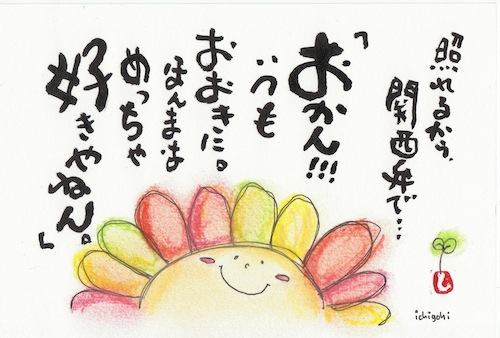 照れるから、
関西弁で…
「おかん!!!
いつも
おおきに。
ほんまは
めっちゃ
好きやねん。」
と
ichigohi